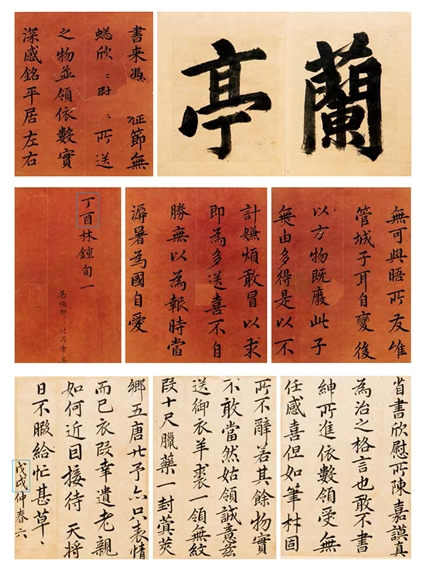 蘭亭
書來憑 征節無
欣〻慰〻所送
之物並領依數實
深感銘平居左右
無可與晤所友惟
管城子耳自夏後
以方物既廢此子
無由多得是以不
計嫌煩敢冒以求
即為多送喜不自
勝無以為報時當
溽暑為國自愛
丁酉林鍾旬一
省書欣慰所陳嘉謨真
為治之格言也敢不書
紳所進依數領受無
任感喜但如筆材固
所不辭若其餘物實
不敢當然姑領誠意茲
送御衣羊裘一領無紋
段十尺臘藥一封蓂莢
鄉五唐 予六只表情
而已衣段幸遺老親
如何近日接待 天將
日不暇給忙甚草〻
戊戌仲春六